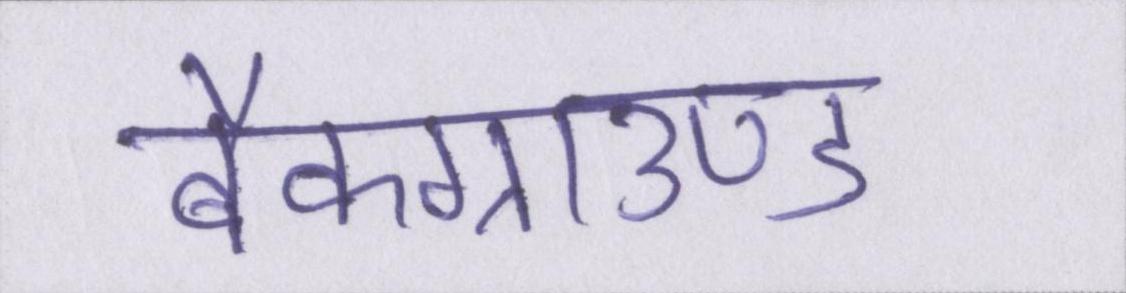 बैकग्राउण्ड